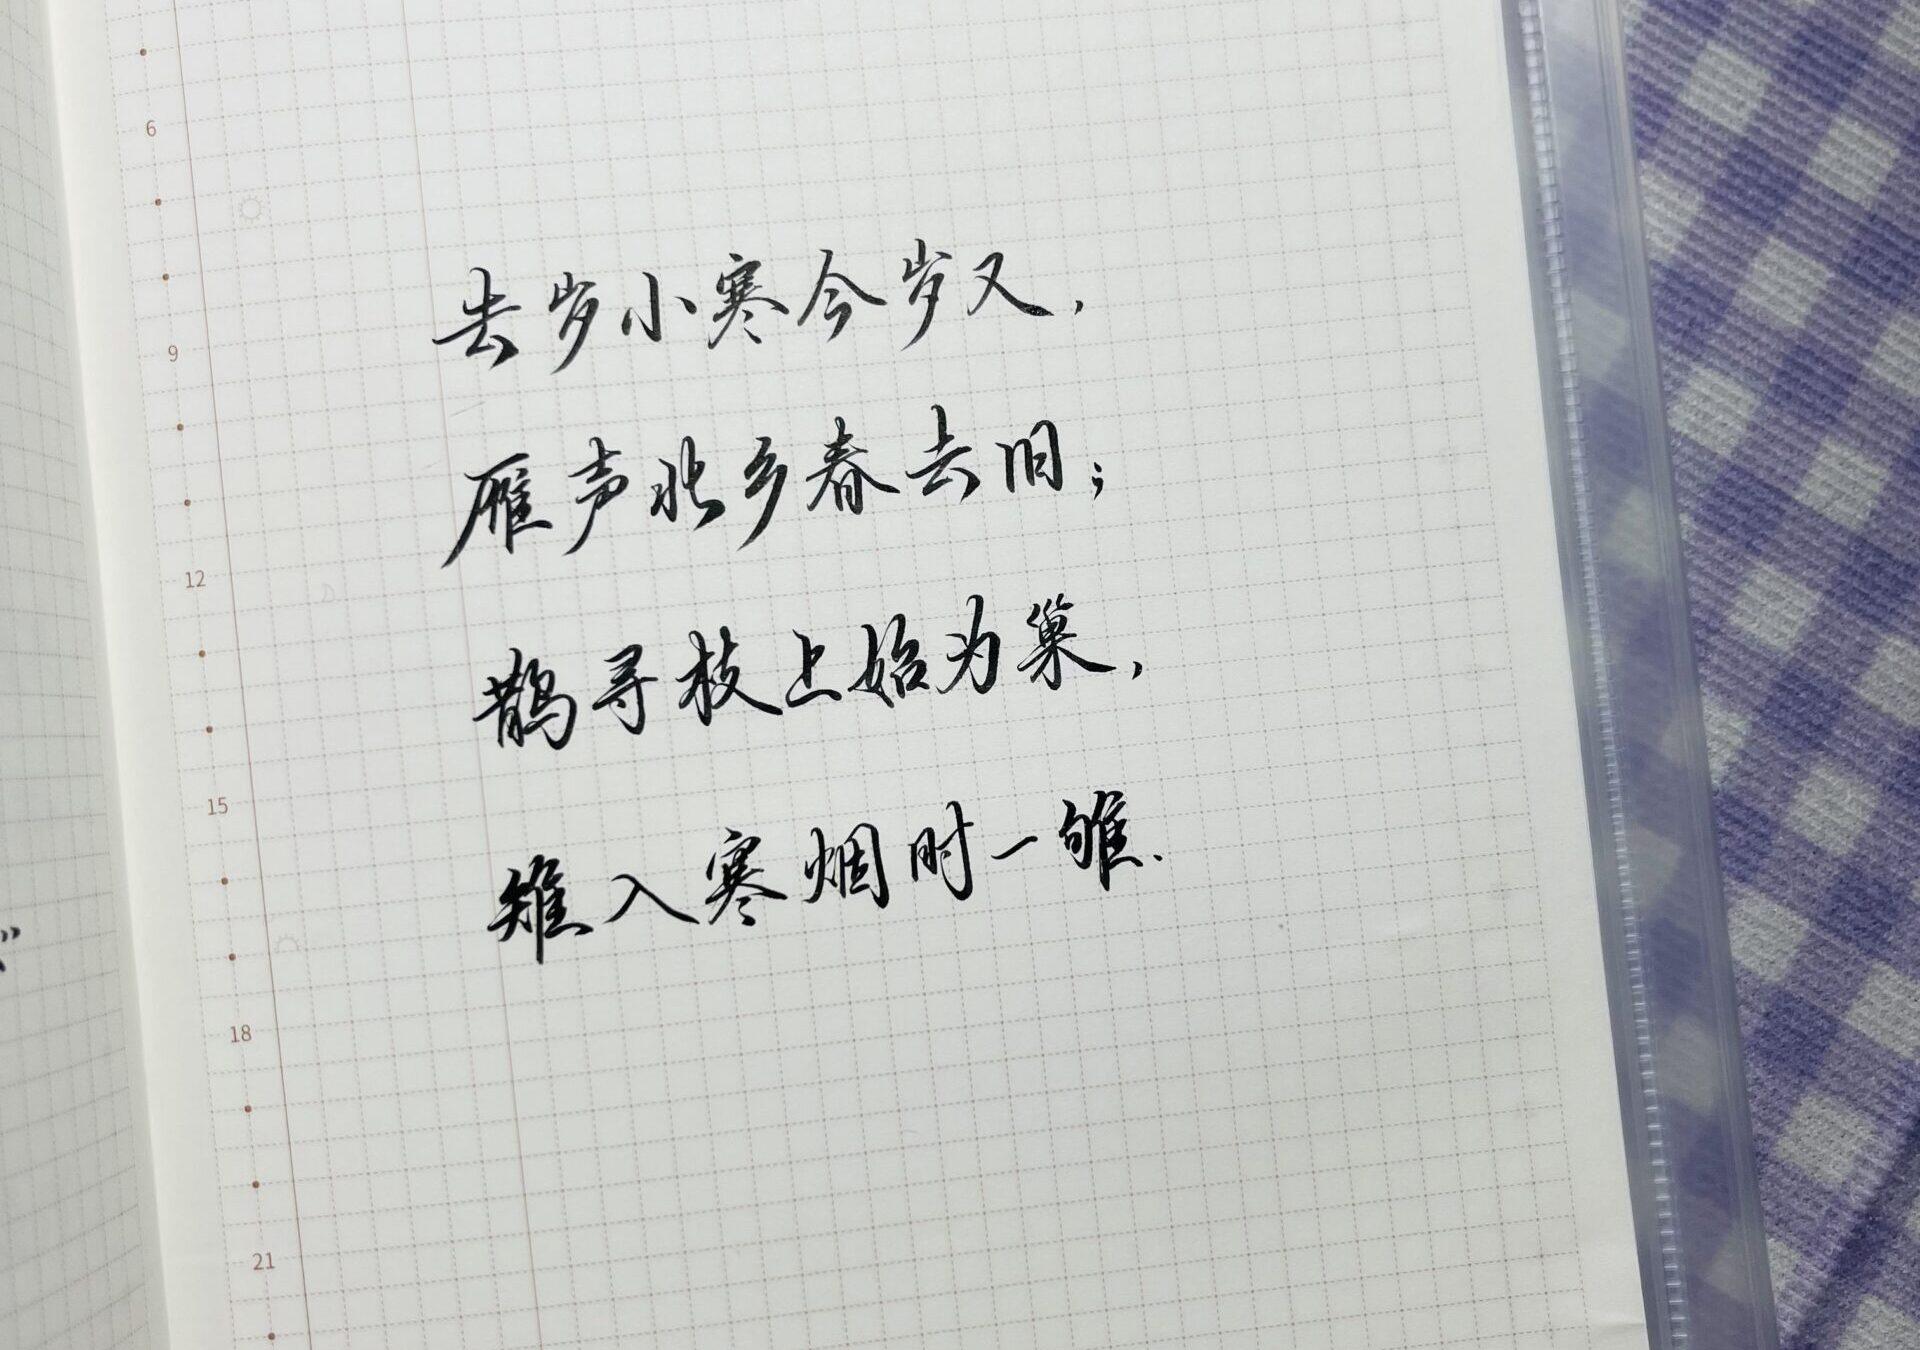 6
9
12
15
18
21
去岁小寒今岁又，
雁声北乡春去旧；
鹊寻枝上始为巢，
雉入寒烟时一雊.
”